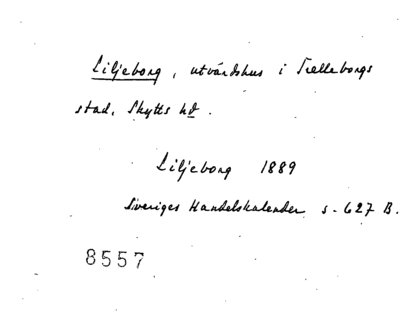 Liljeborg, utvärdshus i Trelleborgs
stad, Skytts hd.
Liljeborg 1889
Sveriges Handelskalender s. 627 B.
8557